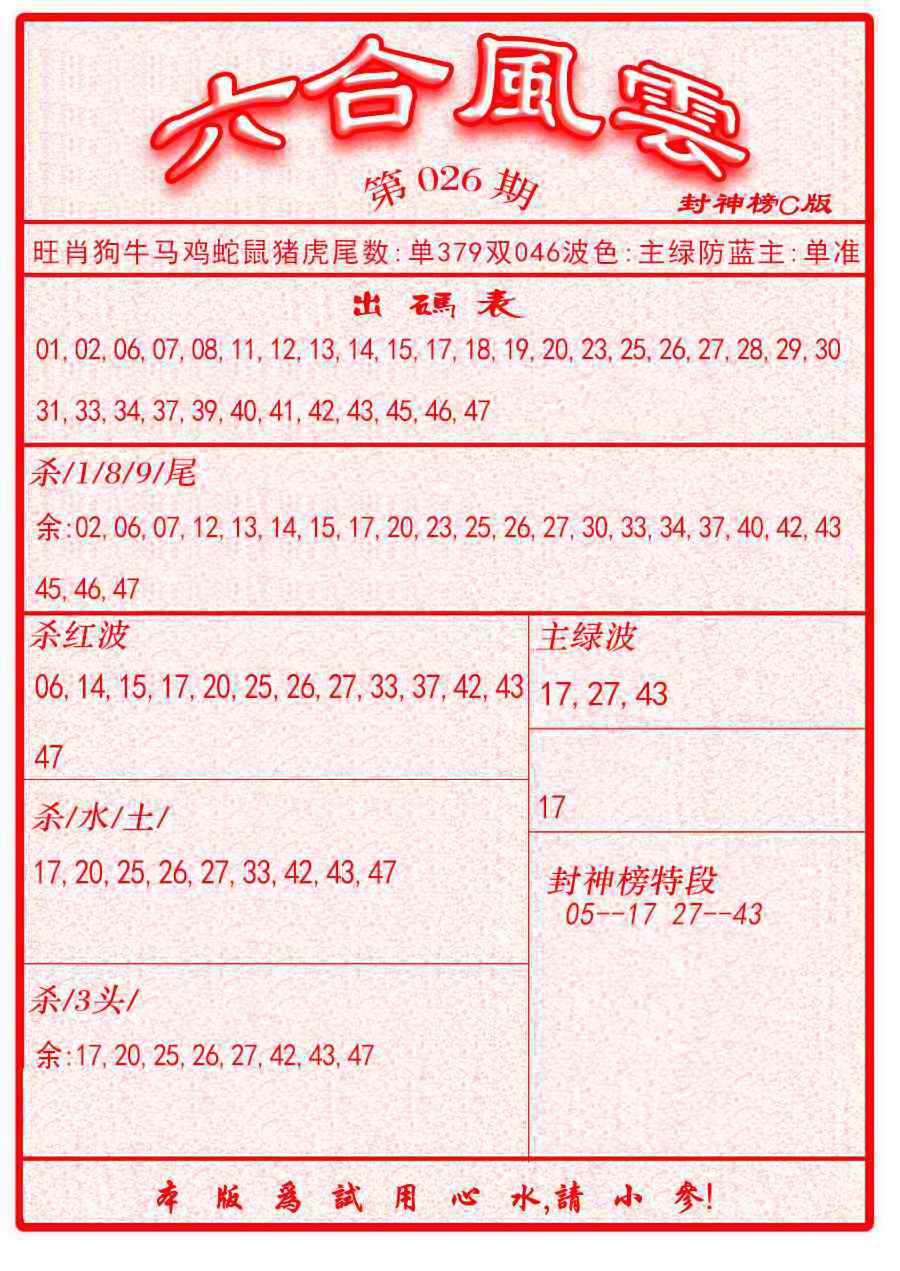 六合風雲
第026期
封神榜C版
旺肖狗牛马鸡蛇鼠猪虎尾数:单379双046波色:主绿防蓝主:单准
出碼表
01,02,06,07,08,11,12,13,14,15,17,18,19,20,23,25,26,27,28,29,30
31,33,34,37,39,40,41,42,43,45,46,47
杀/1/8/9/尾
余:02,06,07,12,13,14,15,17,20,23,25,26,27,30,33,34,37,40,42,43
45,46,47
杀红波
06,14,15,17,20,25,26,27,33,37,42,43
47
主绿波
17,27,43
17
杀/水/土/
17,20,25,26,27,33,42,43,47
封神榜特段
05--17 27--43
杀/3头/
余:17,20,25,26,27,42,43,47
本版爲試用心水,請小參!